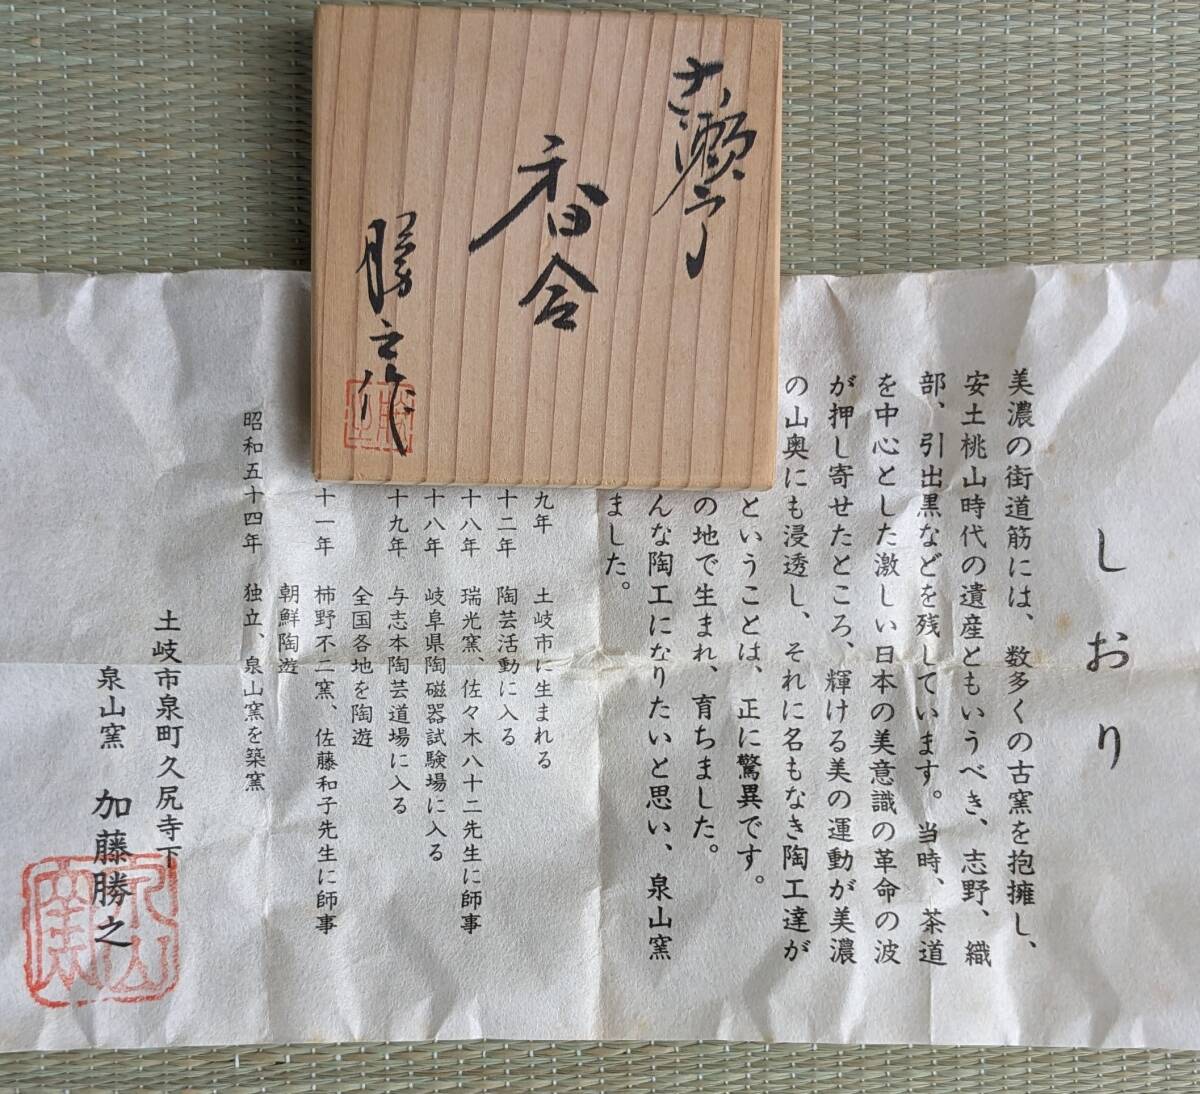 古瀬戸
香合
勝之作
しおり
美濃の街道筋には、数多くの古窯を抱擁し、
安土桃山時代の遺産ともいうべき、志野、織
部、引出黒などを残しています。当時、茶道
を中心とした激しい日本の美意識の革命の波
が押し寄せたところ、輝ける美の運動が美濃
の山奥にも浸透し、それに名もなき陶工達が
ということは、正に驚異です。
の地で生まれ、育ちました。
んな陶工になりたいと思い、泉山窯
ました。
九年 土岐市に生まれる
十二年 陶芸活動に入る
十八年 瑞光窯、佐々木八十二先生に師事
十八年 岐阜県陶磁器試験場に入る
十九年 与志本陶芸道場に入る
全国各地を陶遊
十一年 柿野不二窯、佐藤和子先生に師事
朝鮮陶遊
昭和五十四年 独立、泉山窯を築窯
土岐市泉町久尻寺下
泉山窯 加藤勝之